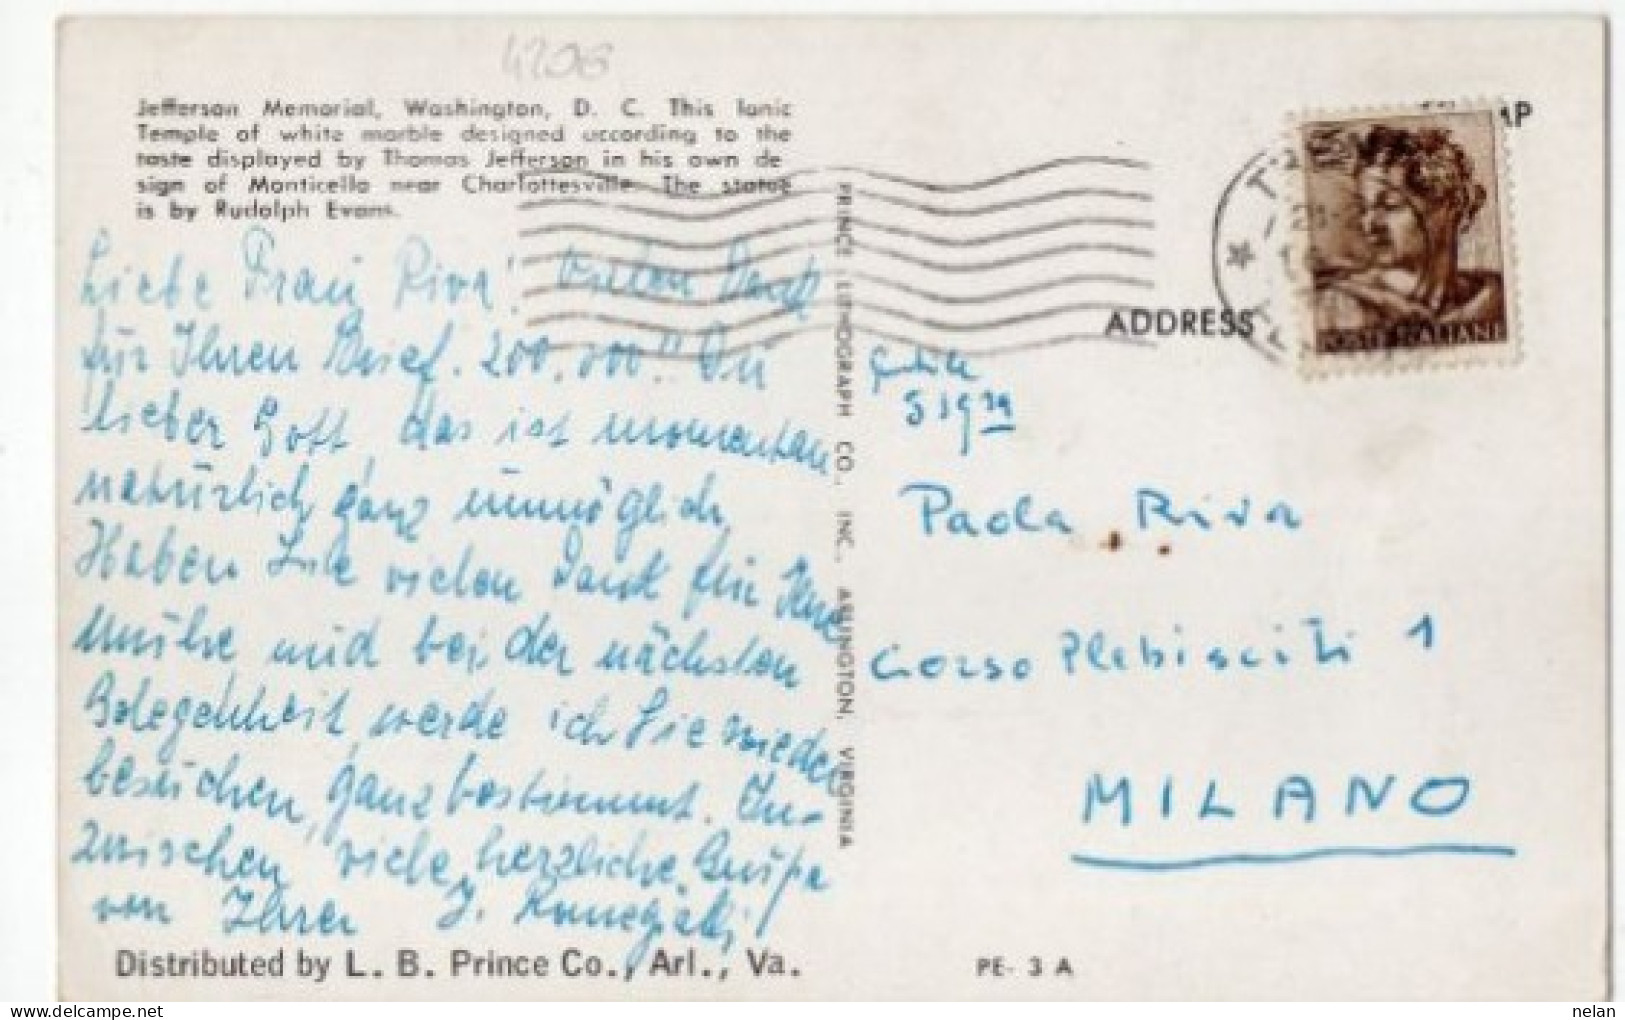 4206
Jefferson Memorial, Washington, D. C. This Ionic
Temple of white marble designed according to the
taste displayed by Thomas Jefferson in his own de
sign of Monticello near Charlottesville. The statue
is by Rudolph Evans.
Liebe Frau Riva! Vielen Dank
für Ihren Brief. 200.000!! Du
lieber Gott, das ist momentan
natürlich ganz unmöglich.
Haben Sie vielen Dank für Ihre
Mühe und bei der nächsten
Gelegenheit werde ich Sie wieder
besuchen, ganz bestimmt. In-
zwischen, viele herzliche Grüße
von Ihrer J.
Distributed by L. B. Prince Co., Arl., Va.
PRINCE LITHOGRAPH CO., INC., ARLINGTON, VIRGINIA
AP
POSTE ITALIANE
ADDRESS
Gentile
Sigra
Paola Riva
Corso Plebisciti 1
MILANO
PE- 3 A
nelan